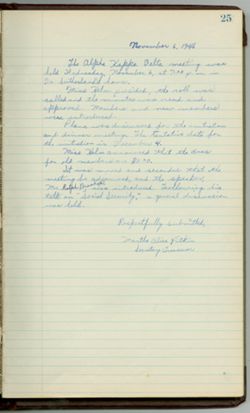 25
November 6, 1946
The Alpha Kappa Delta meeting was
held Wednesday, November 6, at 7:00 p.m. in
Dr. Sutherland's home.
Miss Helm presided, the roll was
called and the minutes were read and
approved. Members and new members
were introduced.
Plans were discussed for the initiation
and dinner meeting. The tentative date for
the initiation is December 4.
Miss Helm announced that the dues
for old members are $2.00.
It was moved and seconded that the
meeting be adjourned, and the speaker,
Mr. Ralph was introduced. Following his
talk on "Social Security," a general discussion
was held.
Respectfully submitted,
Martha Alice
Secretary Treasurer